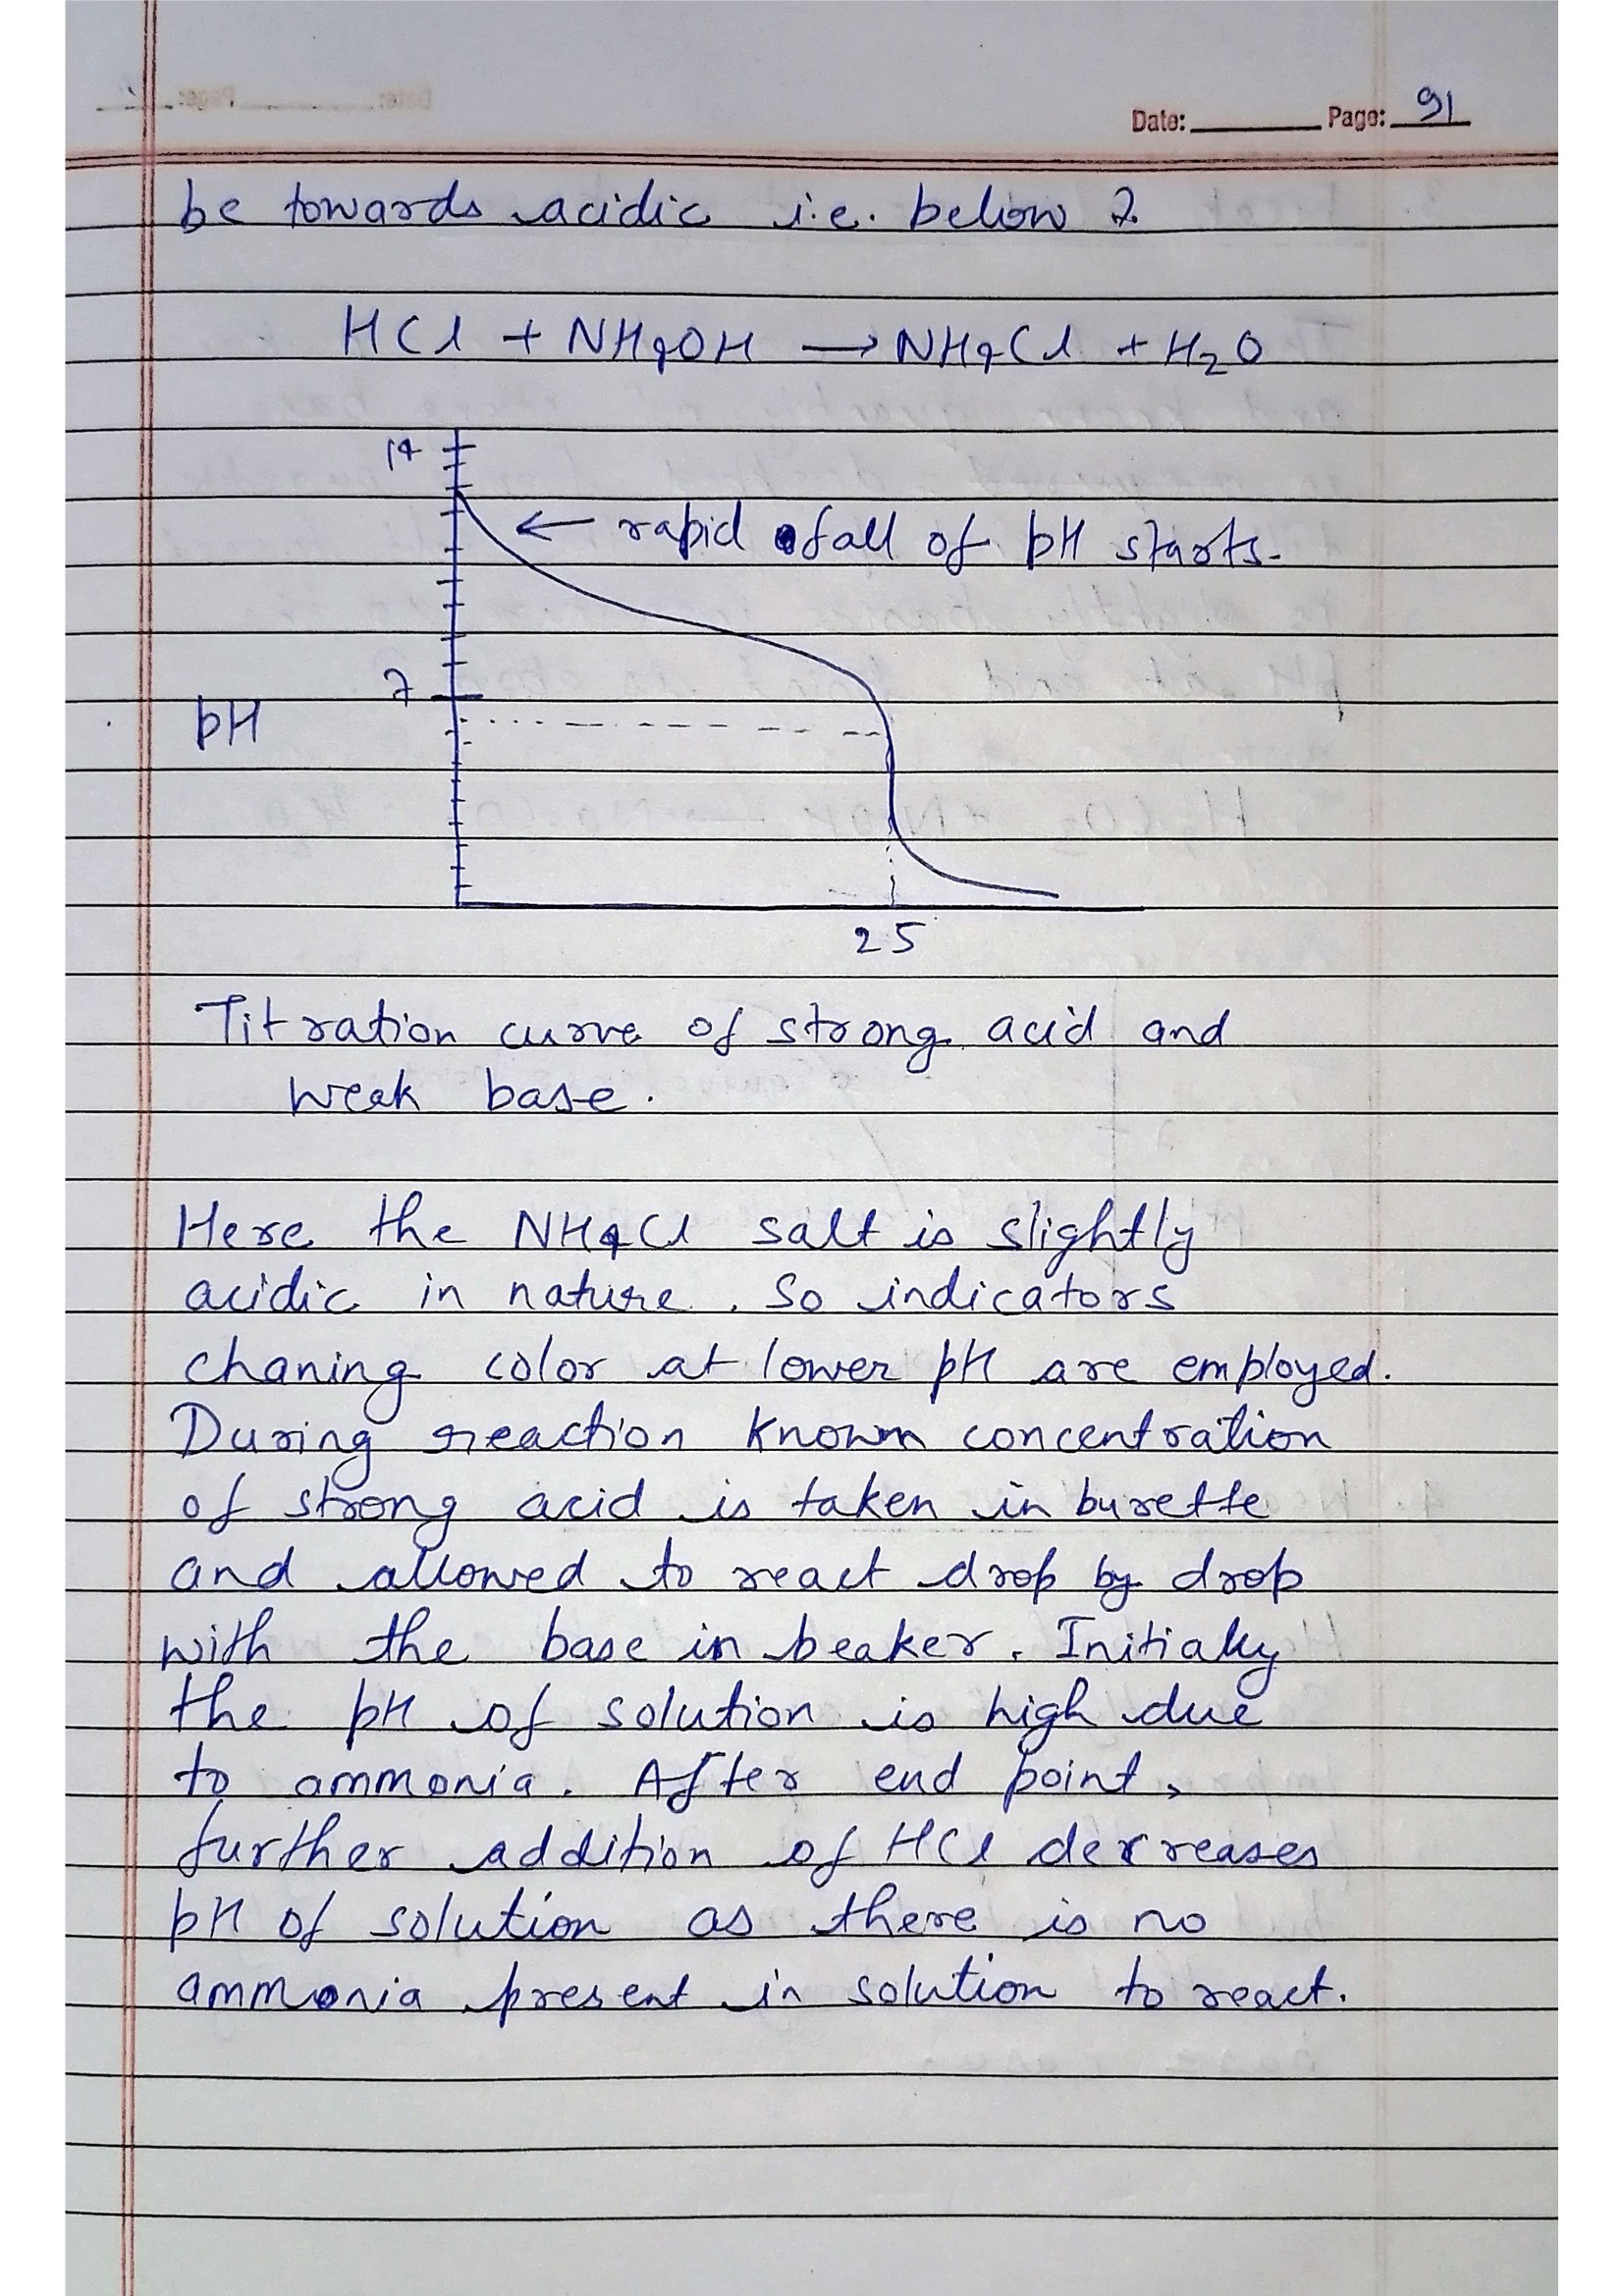 Date: Page: 91
be towards acidic i.e. below 7
HCl + NH4OH → NH4Cl + H2O
14
← rapid fall of pH starts.
7
pH
25
Titration curve of strong acid and
weak base.
Here the NH4Cl salt is slightly
acidic in nature. So indicators
chaning color at lower pH are employed.
During reaction known concentration
of strong acid is taken in burette
and allowed to react drop by drop
with the base in beaker. Initialy
the pH of solution is high due
to ammonia. After end point,
further addition of HCl decreases
pH of solution as there is no
ammonia present in solution to react.